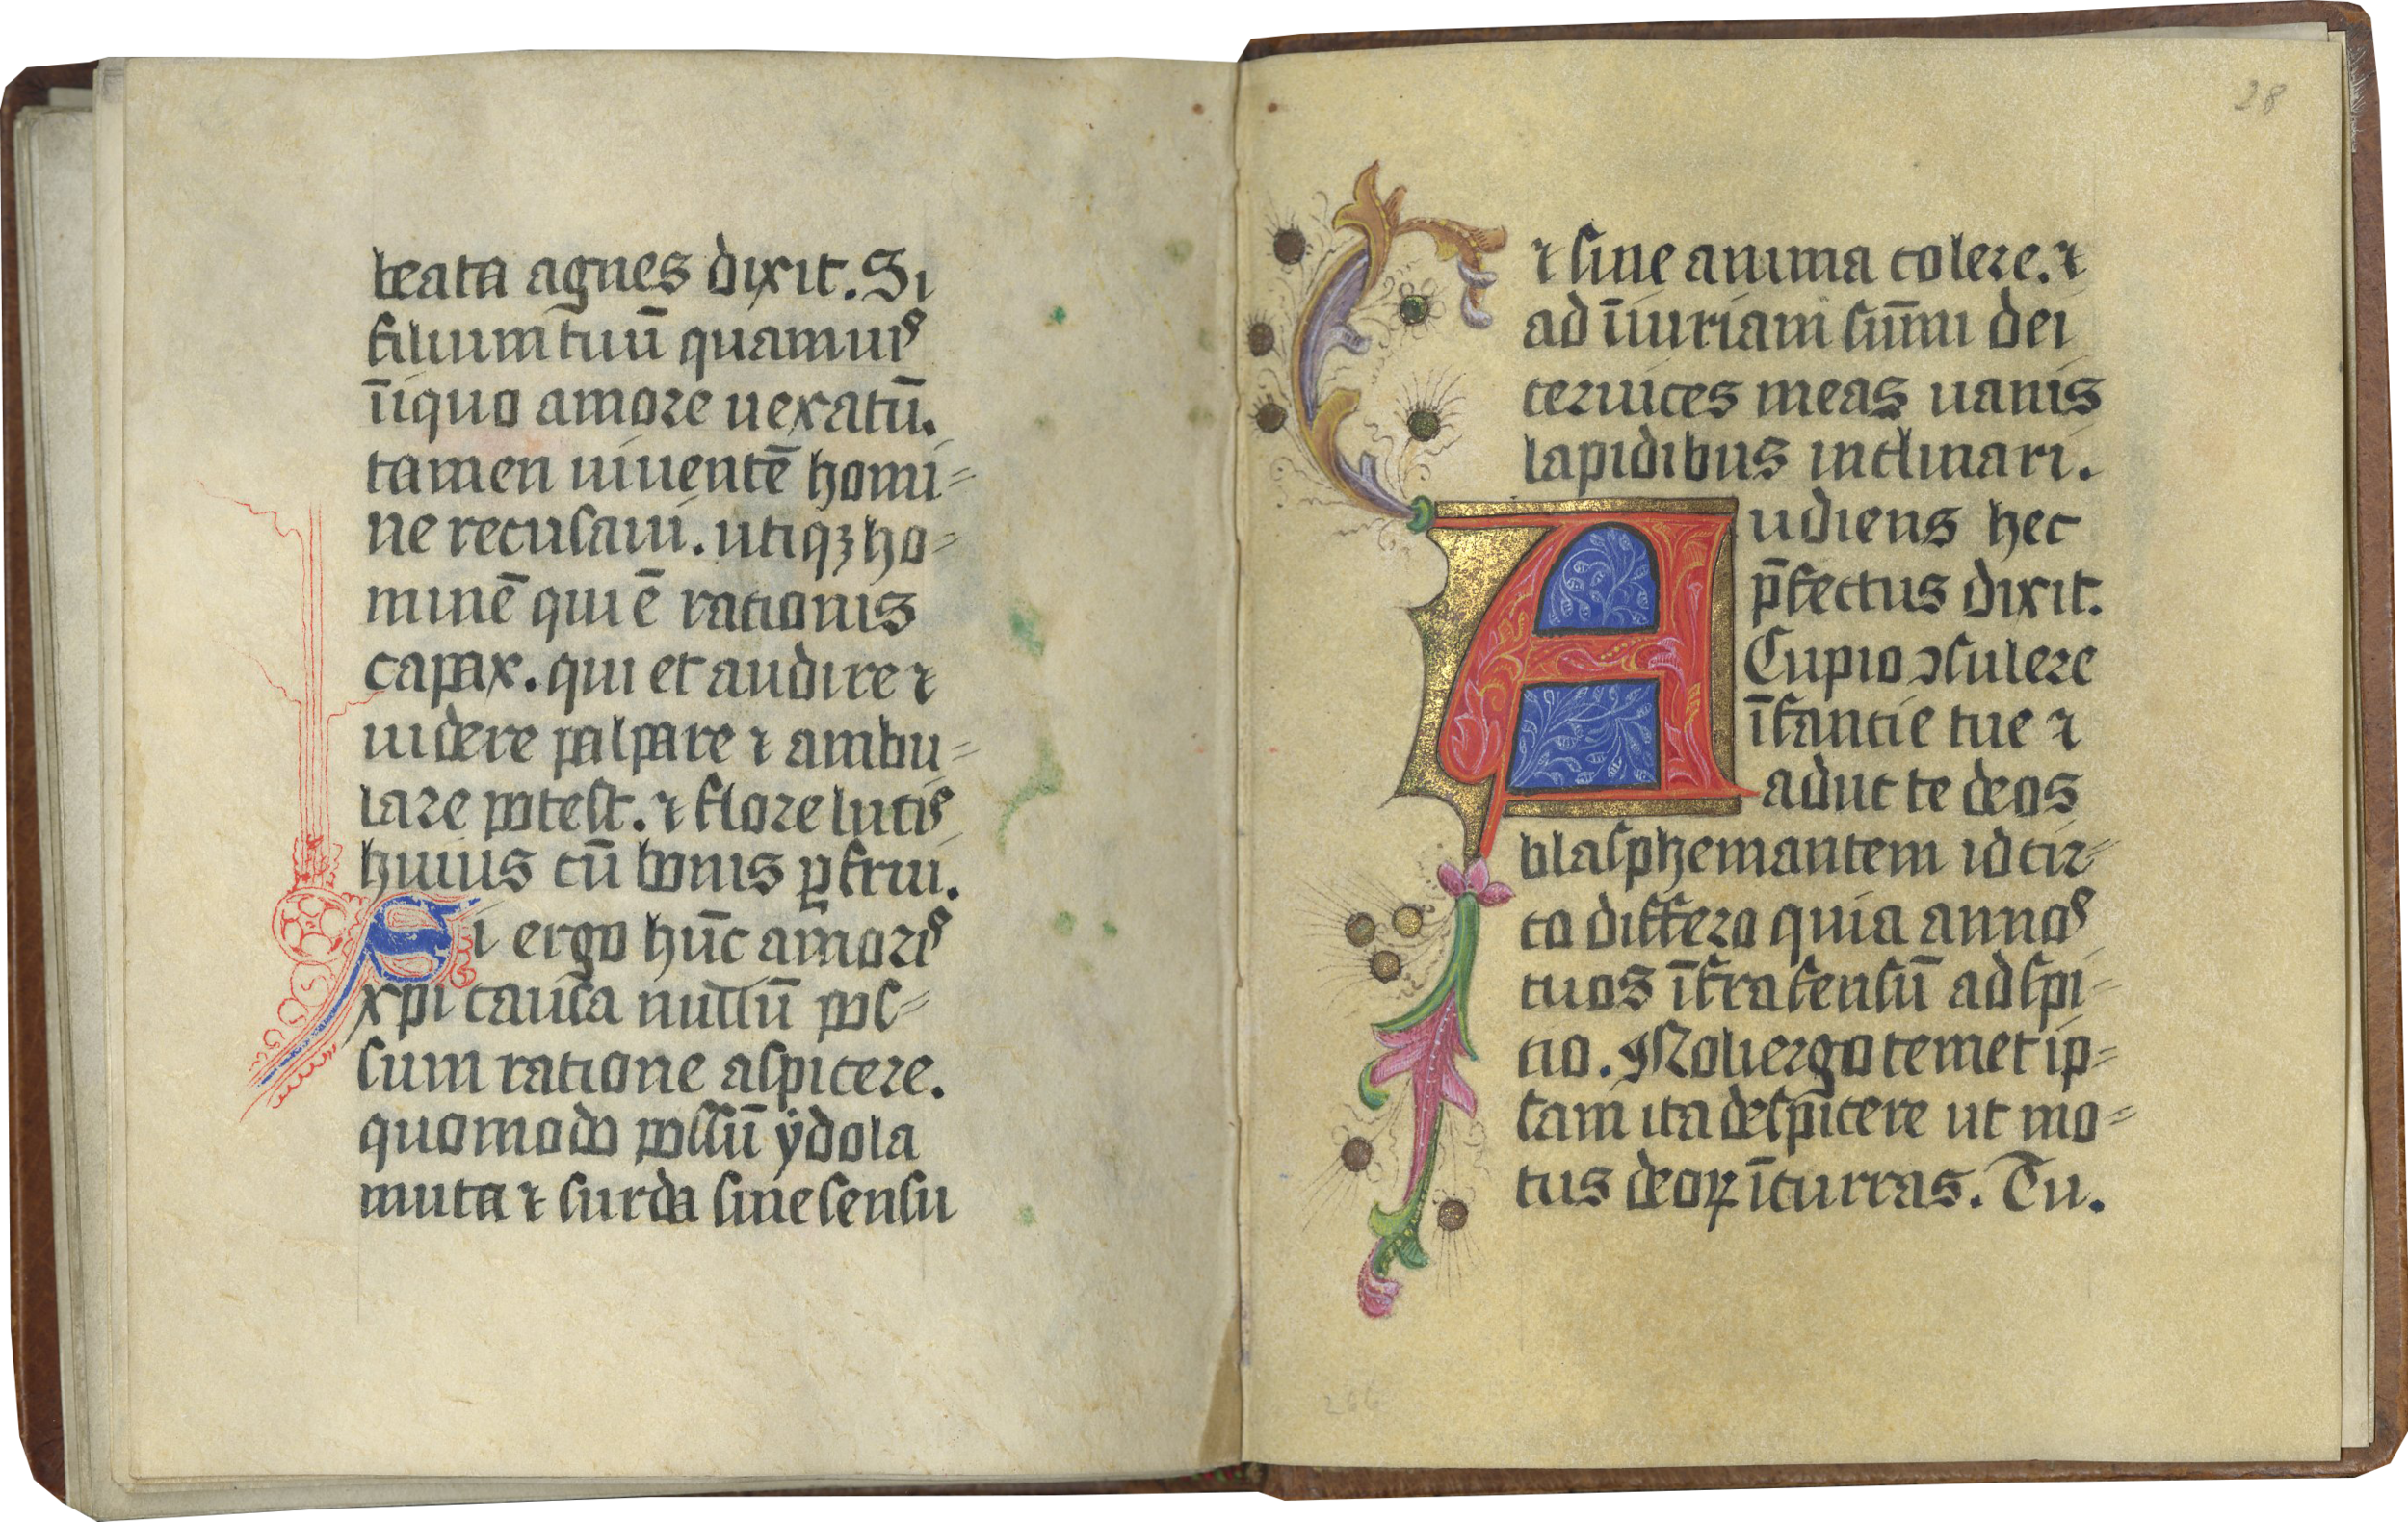 beata agnes dixit. Si
filium tuū quamuis
īiquo amore uexatū.
tamen uiuentē homi=
ne recusaui. utiqꝫ ho=
minē qui ē rationis
capax. qui et audire ⁊
uidere palpare ⁊ ambu=
lare potest. ⁊ flore lucis
huius cū bonis ꝑfrui.
Si ergo hūc amoris
xp̄i causa nullū pos=
sum ratione aspicere.
quomodo possū ydola
muta ⁊ surda sine sensu
28
⁊ sine anima colere. ⁊
ad īiuriam sūmi dei
ceruices meas uanis
lapidibus inclinari.
Audiens hec
p̄fectus dixit.
Cupio ↄsulere
īfantie tue ⁊
aduc te deos
blasphemantem idcir=
co differo quia annos
tuos īfra sensū adspi=
cio. Noli ergo temet ip=
sam ita desp̄icere ut mo=
tus deoꝝ īcurras. Tu.